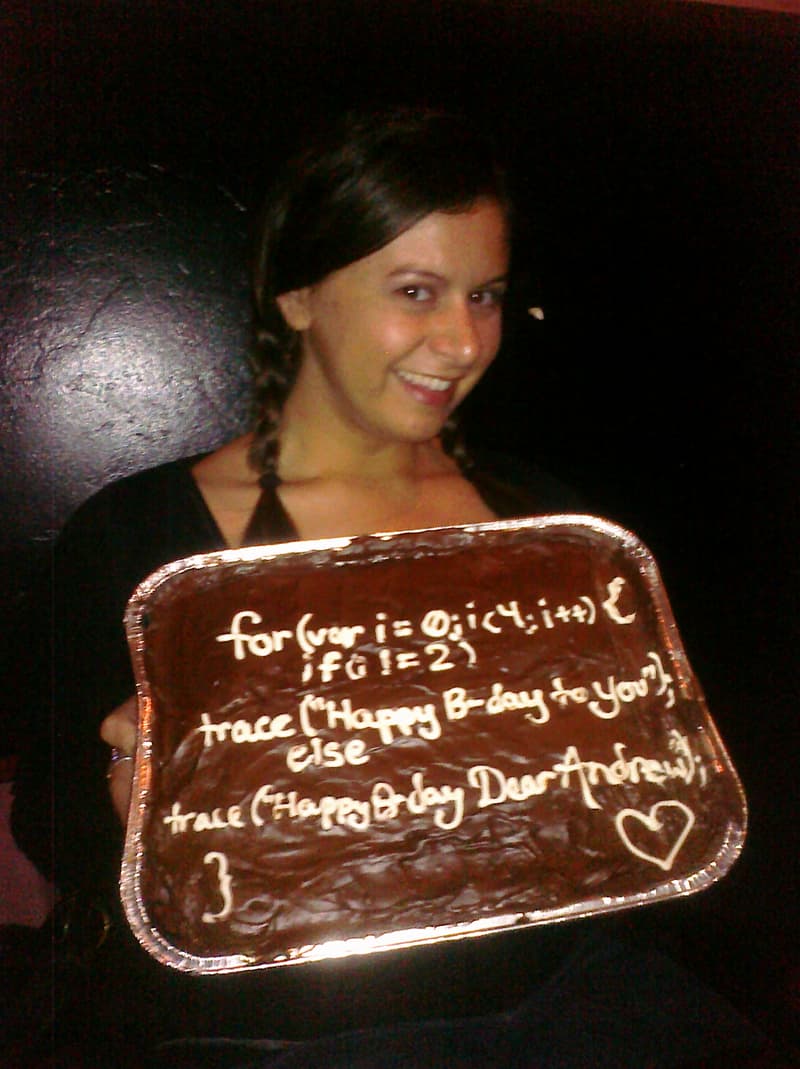 for(var i = 0; i<4; i++) {
if(i != 2)
trace("Happy B-day to You");
else
trace("Happy B-day Dear Andrew");
}